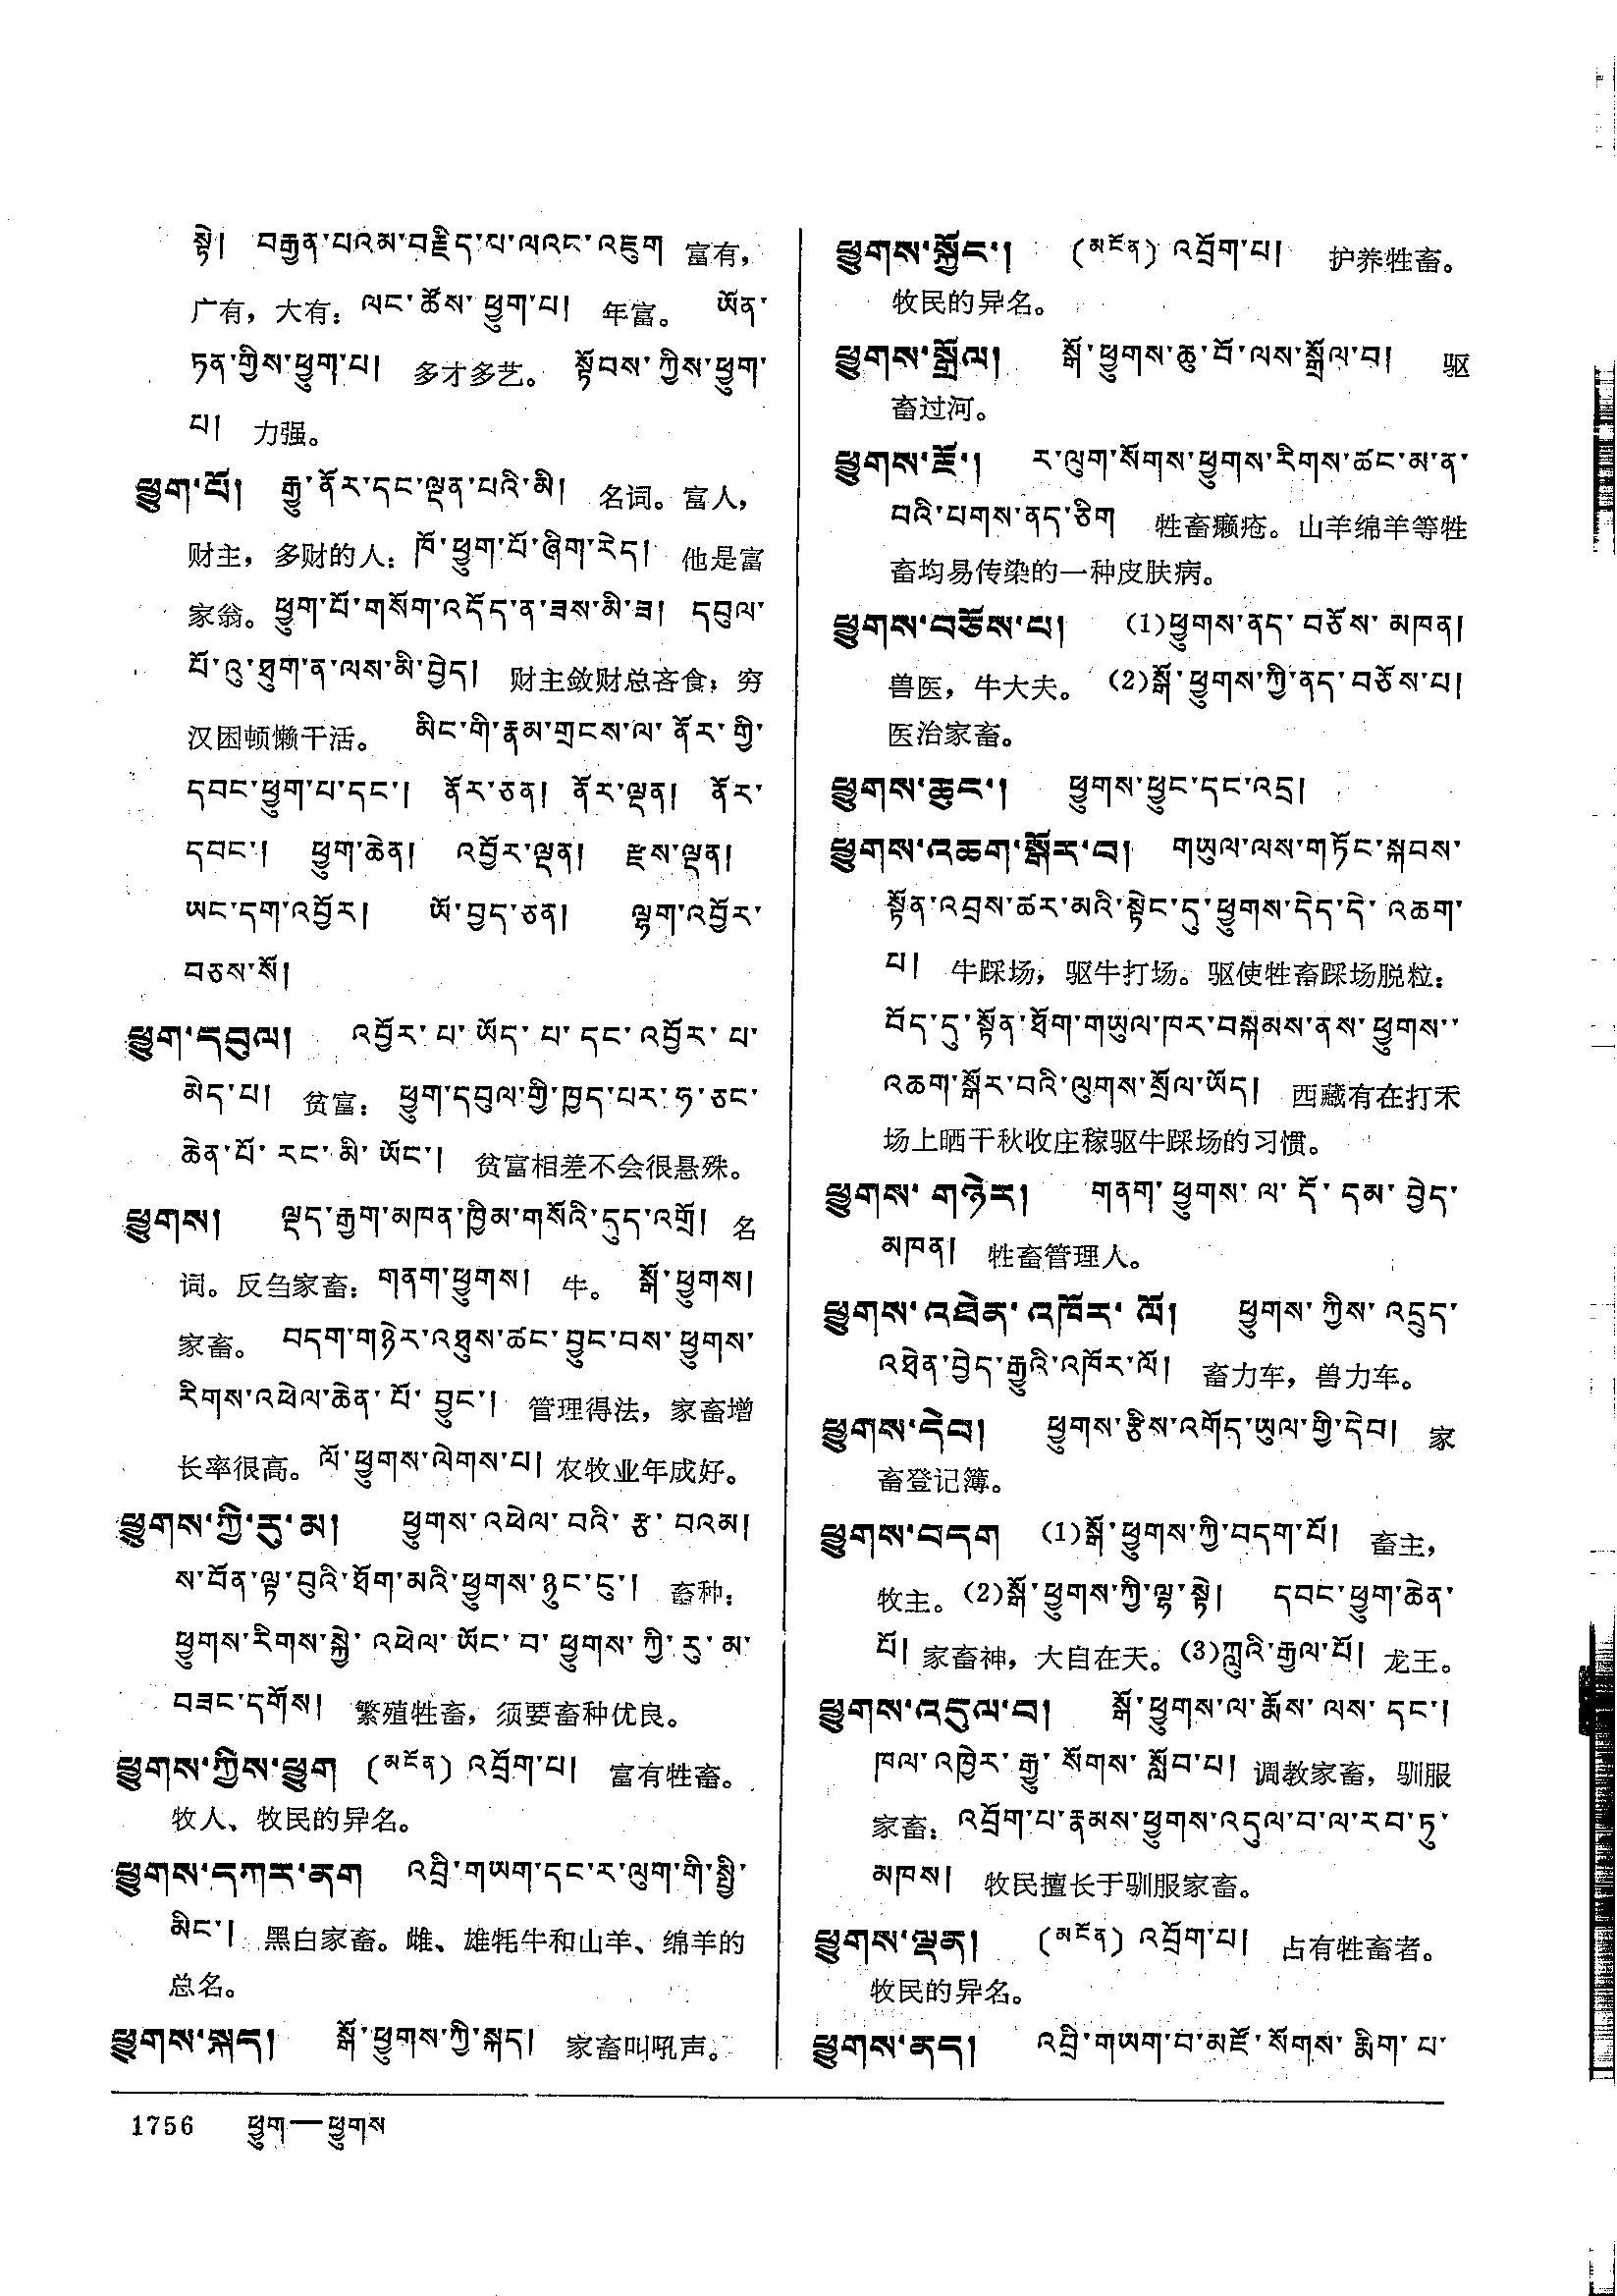 སྟེ། བརྒྱན་པའམ་བརྗིད་པ་ལའང་འཇུག 富有，
广有，大有：ལང་ཚོས་ཕྱུག་པ། 年富。 ཡོན་
ཏན་གྱིས་ཕྱུག་པ། 多才多艺。 སྟོབས་ཀྱིས་ཕྱུག་
པ། 力强。
ཕྱུག་པོ། རྒྱུ་ནོར་དང་ལྡན་པའི་མི། 名词。富人，
财主，多财的人：ཁོ་ཕྱུག་པོ་ཞིག་རེད། 他是富
家翁。ཕྱུག་པོ་གསོག་འདོད་ན་ཟས་མི་ཟ། དབུལ་
པོ་འུ་ཐུག་ན་ལས་མི་བྱེད། 财主敛财总吝食；穷
汉困顿懒干活。 མིང་གི་རྣམ་གྲངས་ལ་ནོར་གྱི་
དབང་ཕྱུག་པ་དང་། ནོར་ཅན། ནོར་ལྡན། ནོར་
དབང་། ཕྱུག་ཆེན། འབྱོར་ལྡན། རྫས་ལྡན།
ཡང་དག་འབྱོར། ཡོ་བྱད་ཅན། ལྷག་འབྱོར་
བཅས་སོ།
ཕྱུག་དབུལ། འབྱོར་པ་ཡོད་པ་དང་འབྱོར་པ་
མེད་པ། 贫富：ཕྱུག་དབུལ་གྱི་ཁྱད་པར་ཧ་ཅང་
ཆེན་པོ་རང་མི་ཡོང་། 贫富相差不会很悬殊。
ཕྱུགས། ལྡད་རྒྱག་མཁན་ཁྱིམ་གསོའི་དུད་འགྲོ། 名
词。反刍家畜：གནག་ཕྱུགས། 牛。 སྒོ་ཕྱུགས།
家畜。 བདག་གཉེར་འཐུས་ཚང་བྱུང་བས་ཕྱུགས་
རིགས་འཕེལ་ཆེན་པོ་བྱུང་། 管理得法，家畜增
长率很高。ལོ་ཕྱུགས་ལེགས་པ། 农牧业年成好。
ཕྱུགས་ཀྱི་རུ་མ། ཕྱུགས་འཕེལ་བའི་རྩ་བའམ།
ས་བོན་ལྟ་བུའི་ཐོག་མའི་ཕྱུགས་ཉུང་ངུ་། 畜种：
ཕྱུགས་རིགས་སྐྱེ་འཕེལ་ཡོང་བ་ཕྱུགས་ཀྱི་རུ་མ་
བཟང་དགོས། 繁殖牲畜，须要畜种优良。
ཕྱུགས་ཀྱིས་ཕྱུག (མངོན) འབྲོག་པ། 富有牲畜。
牧人、牧民的异名。
ཕྱུགས་དཀར་ནག འབྲི་གཡག་དང་ར་ལུག་གི་སྤྱི་
མིང་། 黑白家畜。雌、雄牦牛和山羊、绵羊的
总名。
ཕྱུགས་སྐད། སྒོ་ཕྱུགས་ཀྱི་སྐད། 家畜叫吼声。
ཕྱུགས་སྐྱོང་། (མངོན) འབྲོག་པ། 护养牲畜。
牧民的异名。
ཕྱུགས་སྒྲོལ། སྒོ་ཕྱུགས་ཆུ་བོ་ལས་སྒྲོལ་བ། 驱
畜过河。
ཕྱུགས་རྔོ་། ར་ལུག་སོགས་ཕྱུགས་རིགས་ཚང་མ་ན་
བའི་པགས་ནད་ཅིག 牲畜癞疮。山羊绵羊等牲
畜均易传染的一种皮肤病。
ཕྱུགས་བཅོས་པ། (1)ཕྱུགས་ནད་བཅོས་མཁན།
兽医，牛大夫。(2)སྒོ་ཕྱུགས་ཀྱི་ནད་བཅོས་པ།
医治家畜。
ཕྱུགས་ཆུང་། ཕྱུགས་ཕྱུང་དང་འདྲ།
ཕྱུགས་འཆག་སྐོར་བ། གཡུལ་ལས་གཏོང་སྐབས་
སྟོན་འབྲས་ཚར་མའི་སྟེང་དུ་ཕྱུགས་དེད་དེ་འཆག་
པ། 牛踩场，驱牛打场。驱使牲畜踩场脱粒：
བོད་དུ་སྟོན་ཐོག་གཡུལ་ཁར་བསྐམས་ནས་ཕྱུགས་
འཆག་སྐོར་བའི་ལུགས་སྲོལ་ཡོད། 西藏有在打禾
场上晒干秋收庄稼驱牛踩场的习惯。
ཕྱུགས་གཉེར། གནག་ཕྱུགས་ལ་དོ་དམ་བྱེད་
མཁན། 牲畜管理人。
ཕྱུགས་འཐེན་འཁོར་ལོ། ཕྱུགས་ཀྱིས་འདྲུད་
འཐེན་བྱེད་རྒྱུའི་འཁོར་ལོ། 畜力车，兽力车。
ཕྱུགས་དེབ། ཕྱུགས་རྩིས་འགོད་ཡུལ་གྱི་དེབ། 家
畜登记簿。
ཕྱུགས་བདག (1)སྒོ་ཕྱུགས་ཀྱི་བདག་པོ། 畜主，
牧主。(2)སྒོ་ཕྱུགས་ཀྱི་ལྷ་སྟེ། དབང་ཕྱུག་ཆེན་
པོ། 家畜神，大自在天。(3)ཀླུའི་རྒྱལ་པོ། 龙王。
ཕྱུགས་འདུལ་བ། སྒོ་ཕྱུགས་ལ་རྨོས་ལས་དང་།
ཁལ་འཁྱེར་རྒྱུ་སོགས་སློབ་པ། 调教家畜，驯服
家畜：འབྲོག་པ་རྣམས་ཕྱུགས་འདུལ་བ་ལ་རབ་ཏུ་
མཁས། 牧民擅长于驯服家畜。
ཕྱུགས་ལྡན། (མངོན) འབྲོག་པ། 占有牲畜者。
牧民的异名。
ཕྱུགས་ནད། འབྲི་གཡག་བ་མཛོ་སོགས་རྨིག་པ་
1756 ཕྱུག—ཕྱུགས